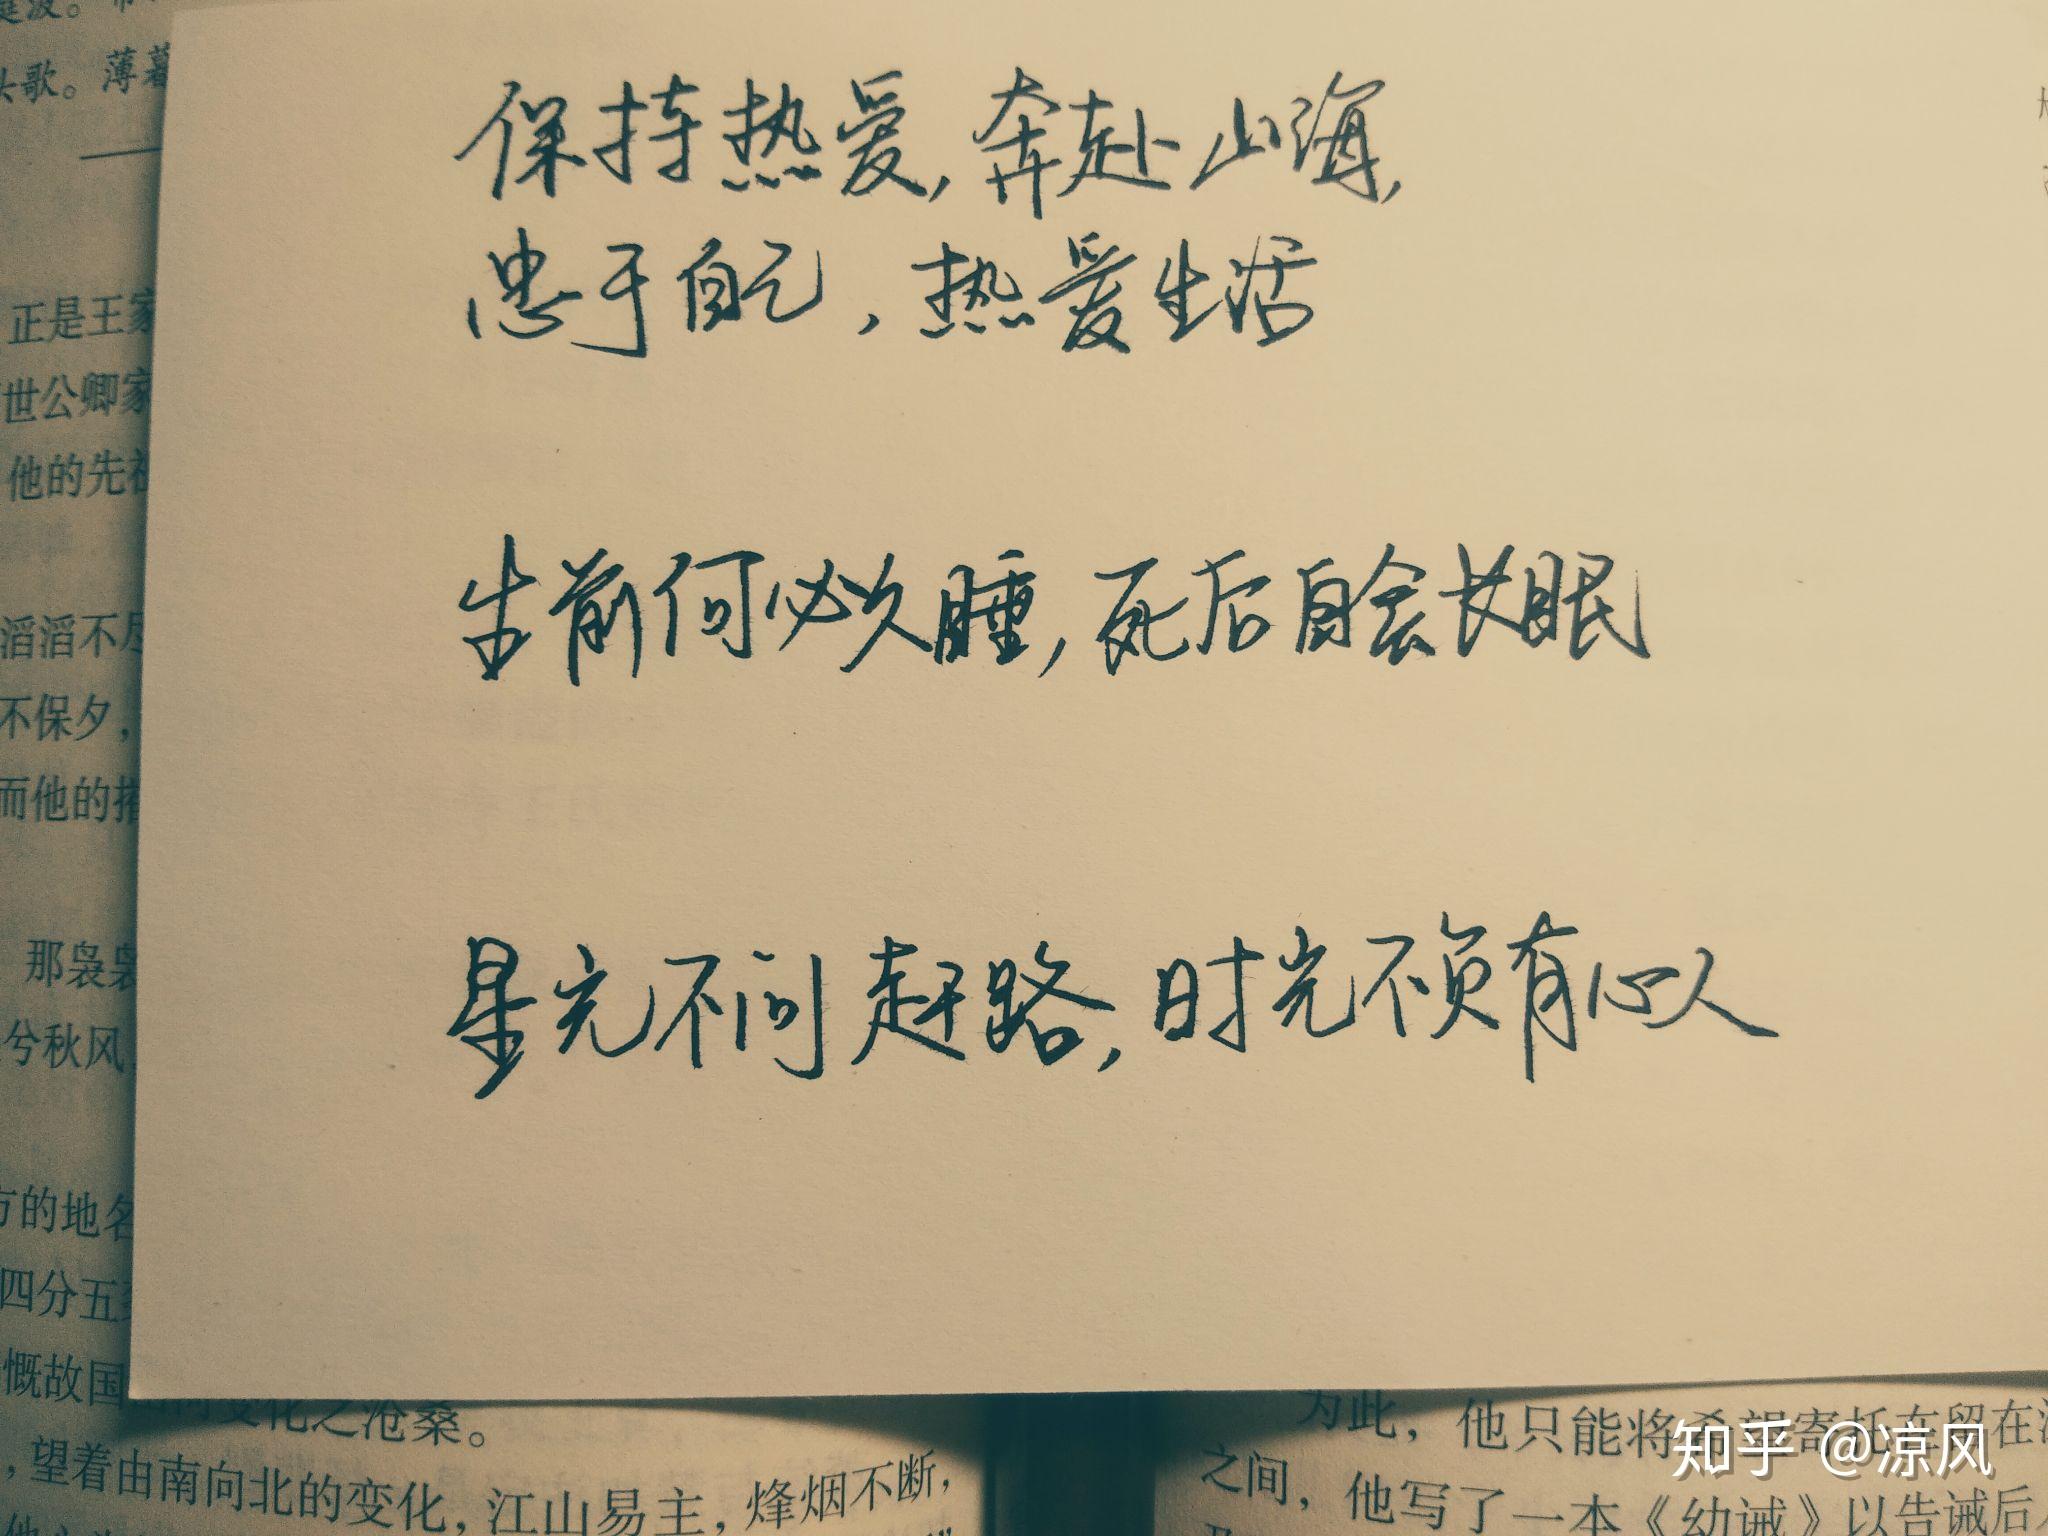 保持热爱，奔赴山海，
忠于自己，热爱生活
生前何必久睡，死后自会长眠
星光不问赶路，时光不负有心人
头歌。薄暮
正是王家
世公卿家
他的先祖
滔滔不尽
不保夕，
而他的措
那袅袅
兮秋风
方的地名
四分五裂
慨故国山河变化之沧桑。
，望着由南向北的变化，江山易主，烽烟不断，
为此，他只能将希望寄托在留在
之间，他写了一本《幼诫》以告诫后人
知乎 @凉风